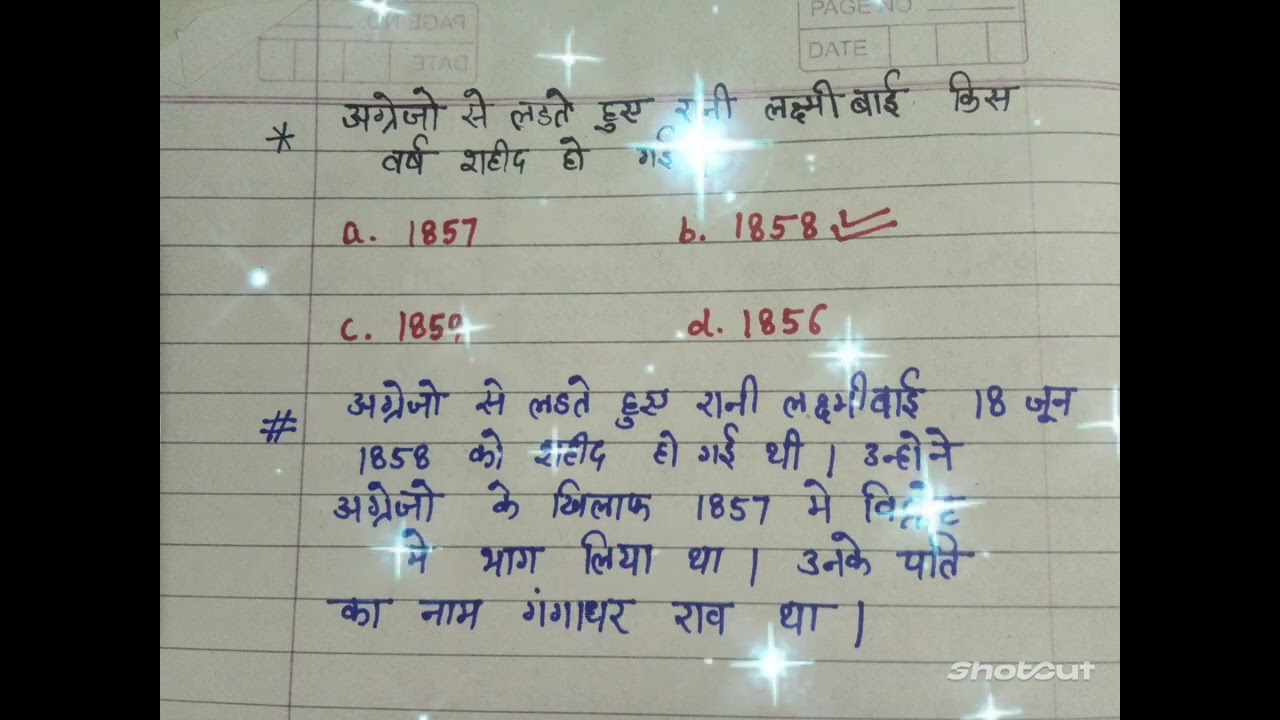 PAGE NO.
DATE
PAGE NO.
DATE
* अग्रेजो से लडते हुए रानी लक्ष्मी बाई किस
वर्ष शहीद हो गई
a. 1857 b. 1858
c. 185 d. 1856
# अग्रेजो से लडते हुए रानी लक्ष्मी बाई 18 जून
1858 को शहीद हो गई थी | उन्होने
अग्रेजो के खिलाफ 1857 मे
मे भाग लिया था | उनके पति
का नाम गंगाधर राव था |
Shotcut